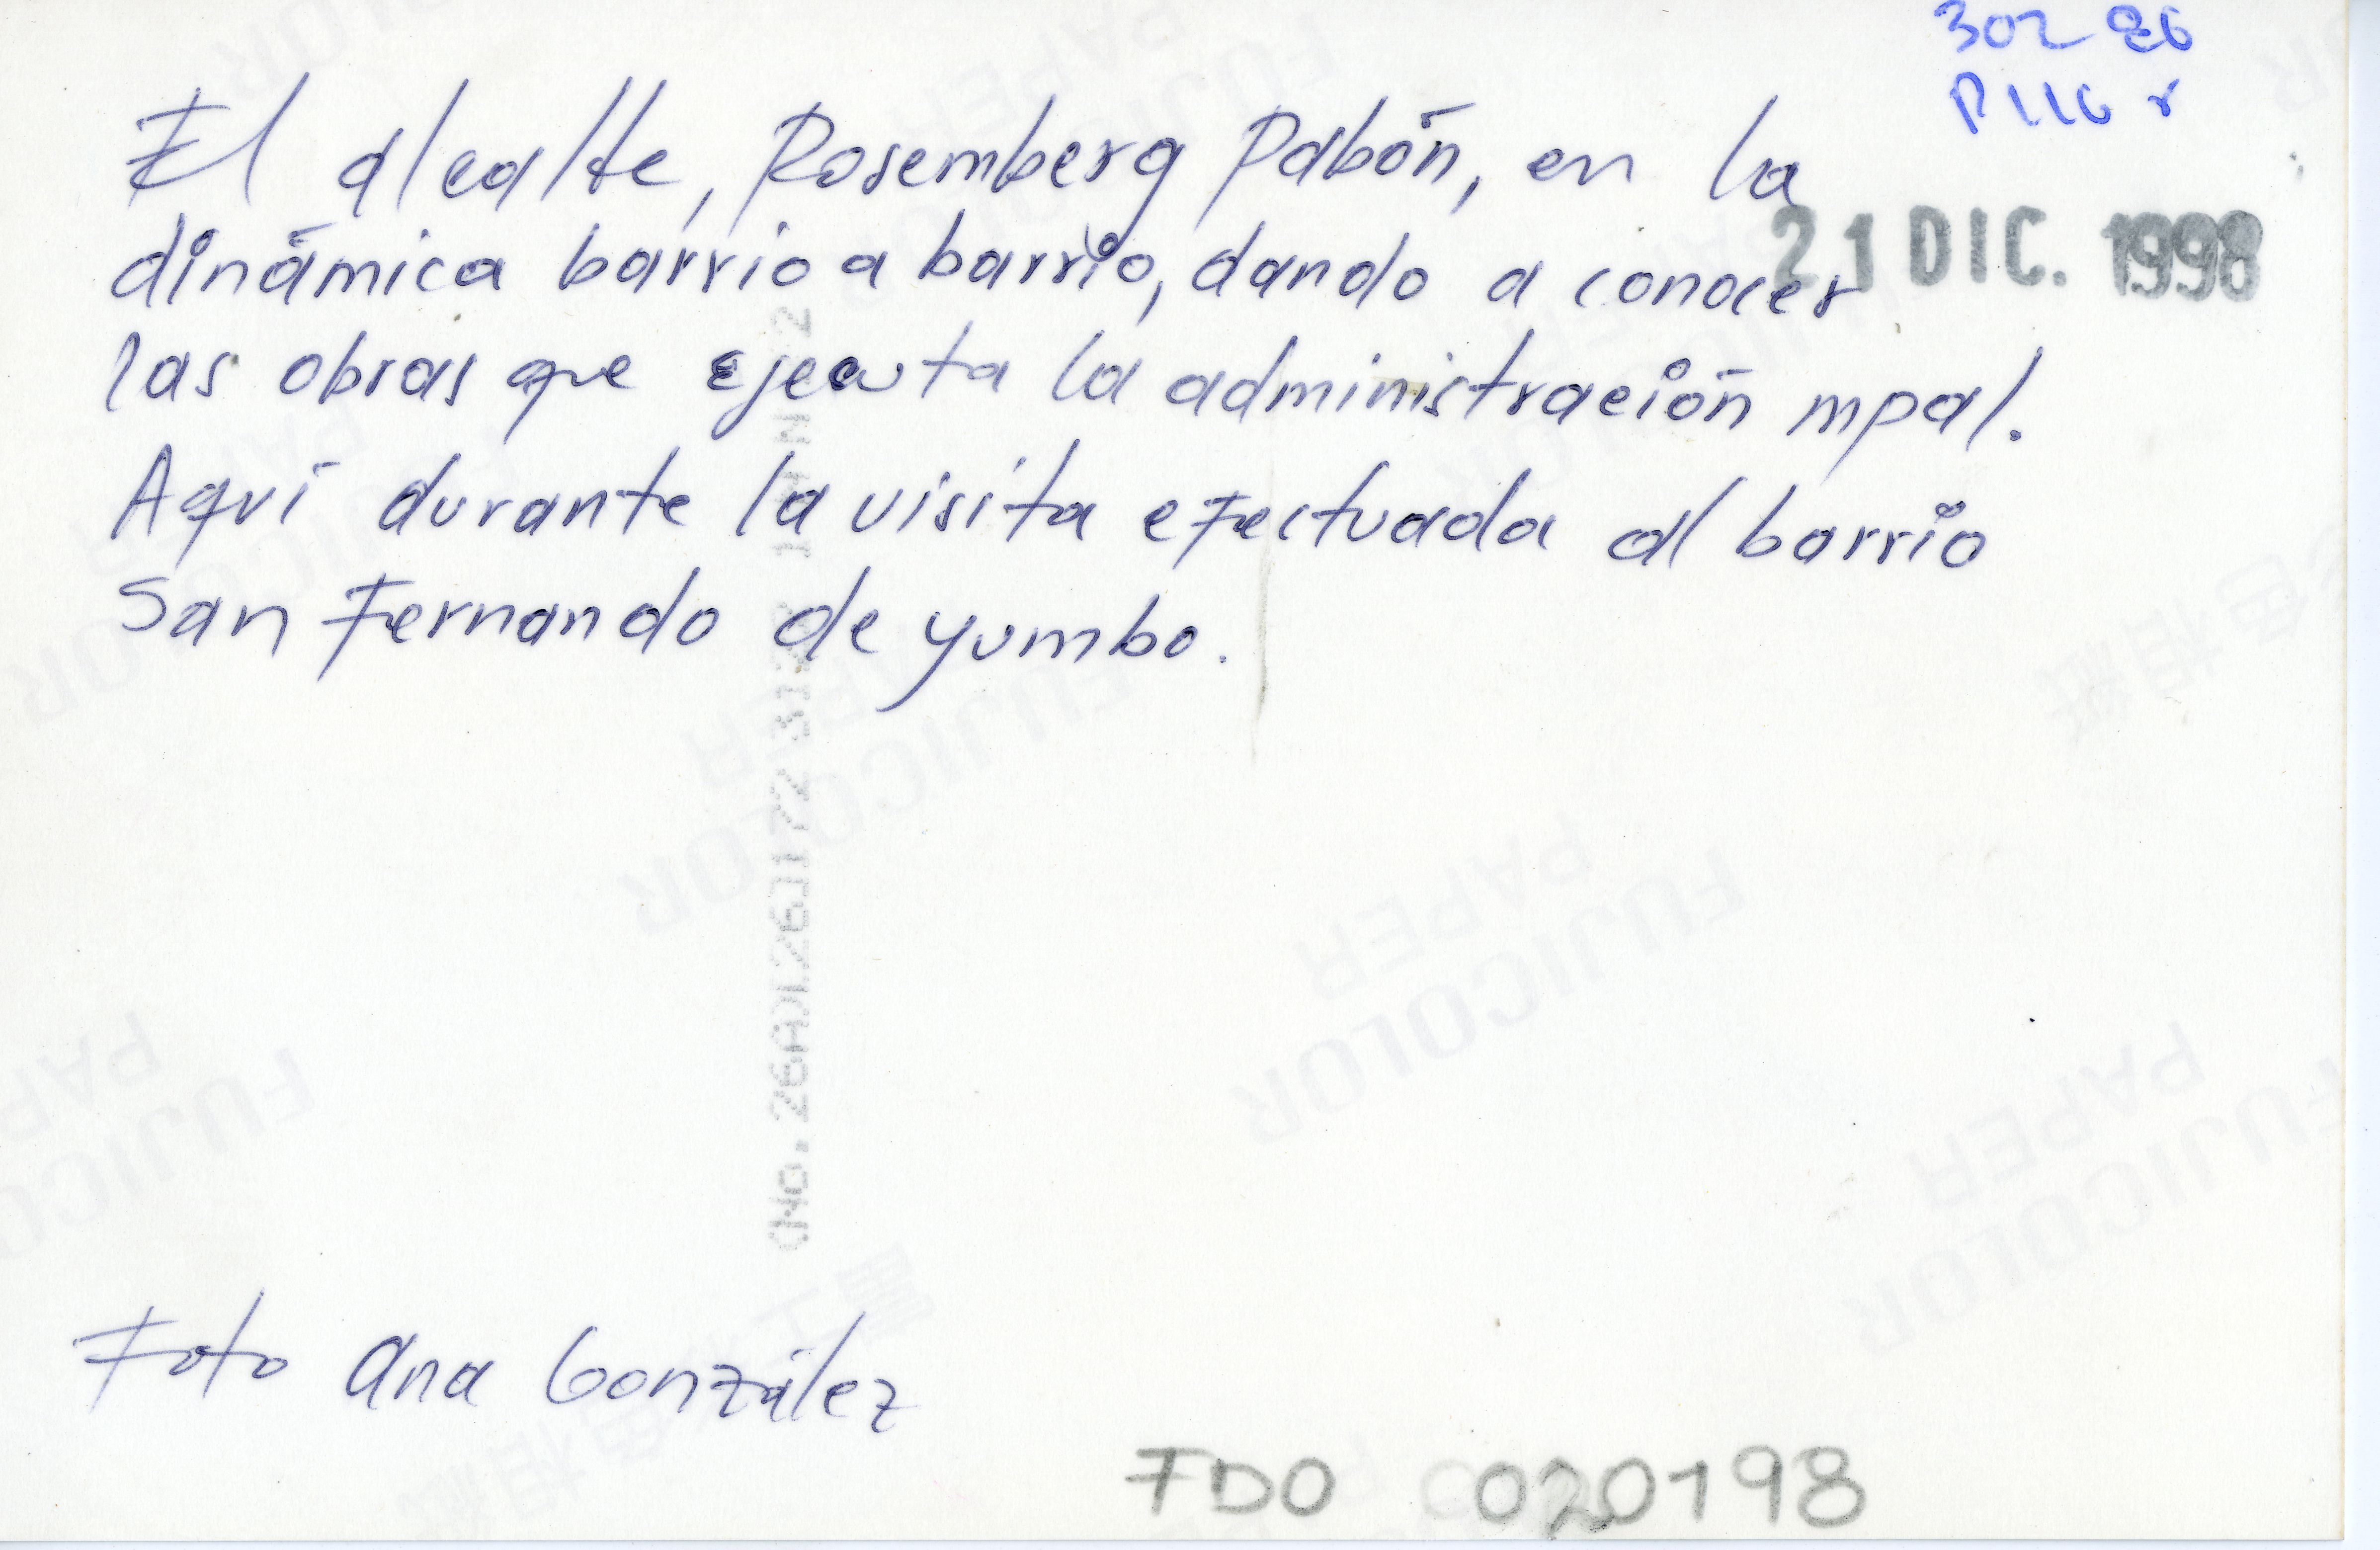 302 26
P116 r
El alcalde, Rosemberg Pabón, en la
21 DIC. 1998
dinámica barrio a barrio, dando a conocer
las obras que ejecuta la administración mpal.
Aquí durante la visita efectuada al barrio
San Fernando de yumbo.
Foto Ana González
FDO 020198
FUJICOLOR
PAPER